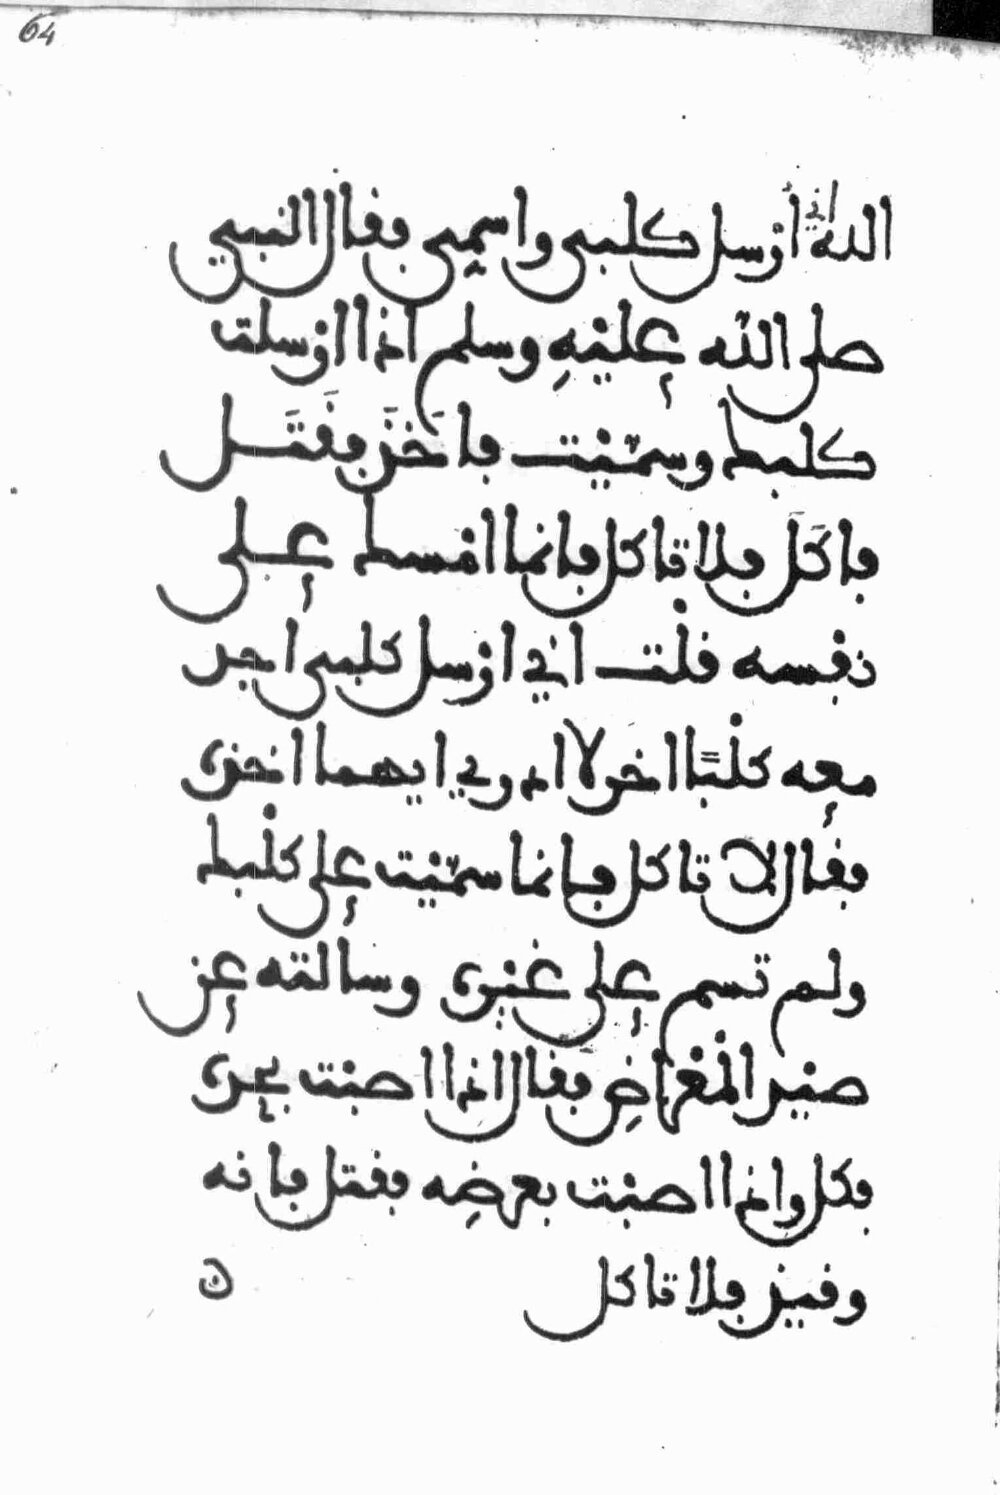 64
الله اني أرسل كلبي واسمي فقال النبي
صلى الله عليه وسلم اذا ارسلت
كلبك وسميت فاخذ فقتل
فاكل فلا تاكل فانما امسك على
نفسه قلت اني ارسل كلبي اجد
معه كلبا اخر لا ادري ايهما اخذه
فقال لا تاكل فانما سميت على كلبك
ولم تسم على غيره وسالته عن
صيد المعراض فقال اذا اصبت بحده
فكل واذا اصبت بعرضه فقتل فانه
وقيذ فلا تاكل ن